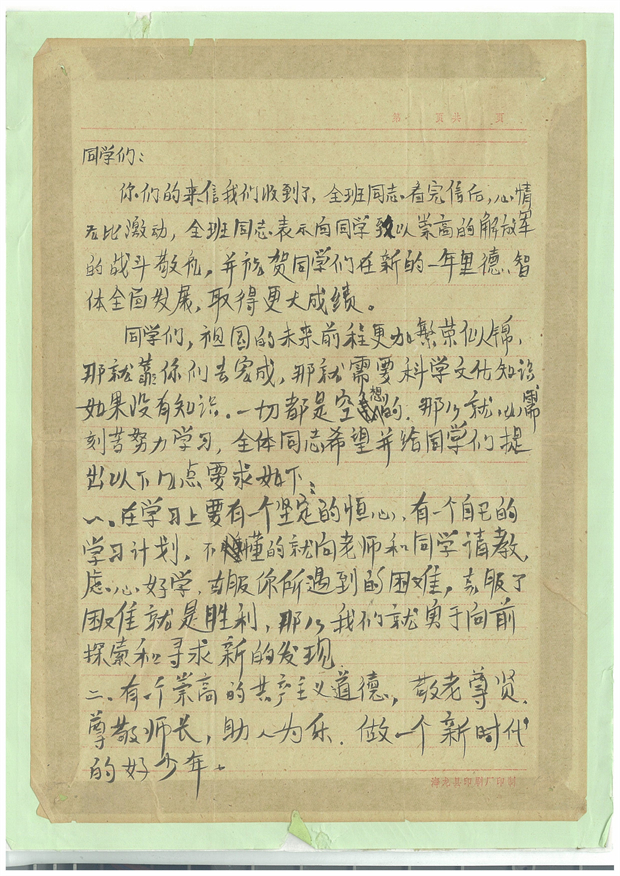 第 页 共 页
同学们：
你们的来信我们收到了，全班同志看完信后，心情
无比激动，全班同志表示向同学致以崇高的解放军
的战斗敬礼，并祝贺同学们在新的一年里德、智
体全面发展，取得更大成绩。
同学们，祖国的未来前程更加繁荣似锦，
那就靠你们去完成，那就需要科学文化知识，
如果没有知识。一切都是空想的。那么就必需
刻苦努力学习，全体同志希望并给同学们提
出以下几点要求如下：
一、在学习上要有一个坚定的恒心、有一个自己的
学习计划，不懂的就向老师和同学请教，
虚心好学，克服你所遇到的困难，克服了
困难就是胜利，那么我们就勇于向前
探索和寻求新的发现
二、有一个崇高的共产主义道德，敬老尊贤、
尊敬师长，助人为乐．做一个新时代
的好少年。
海龙县印刷厂印制